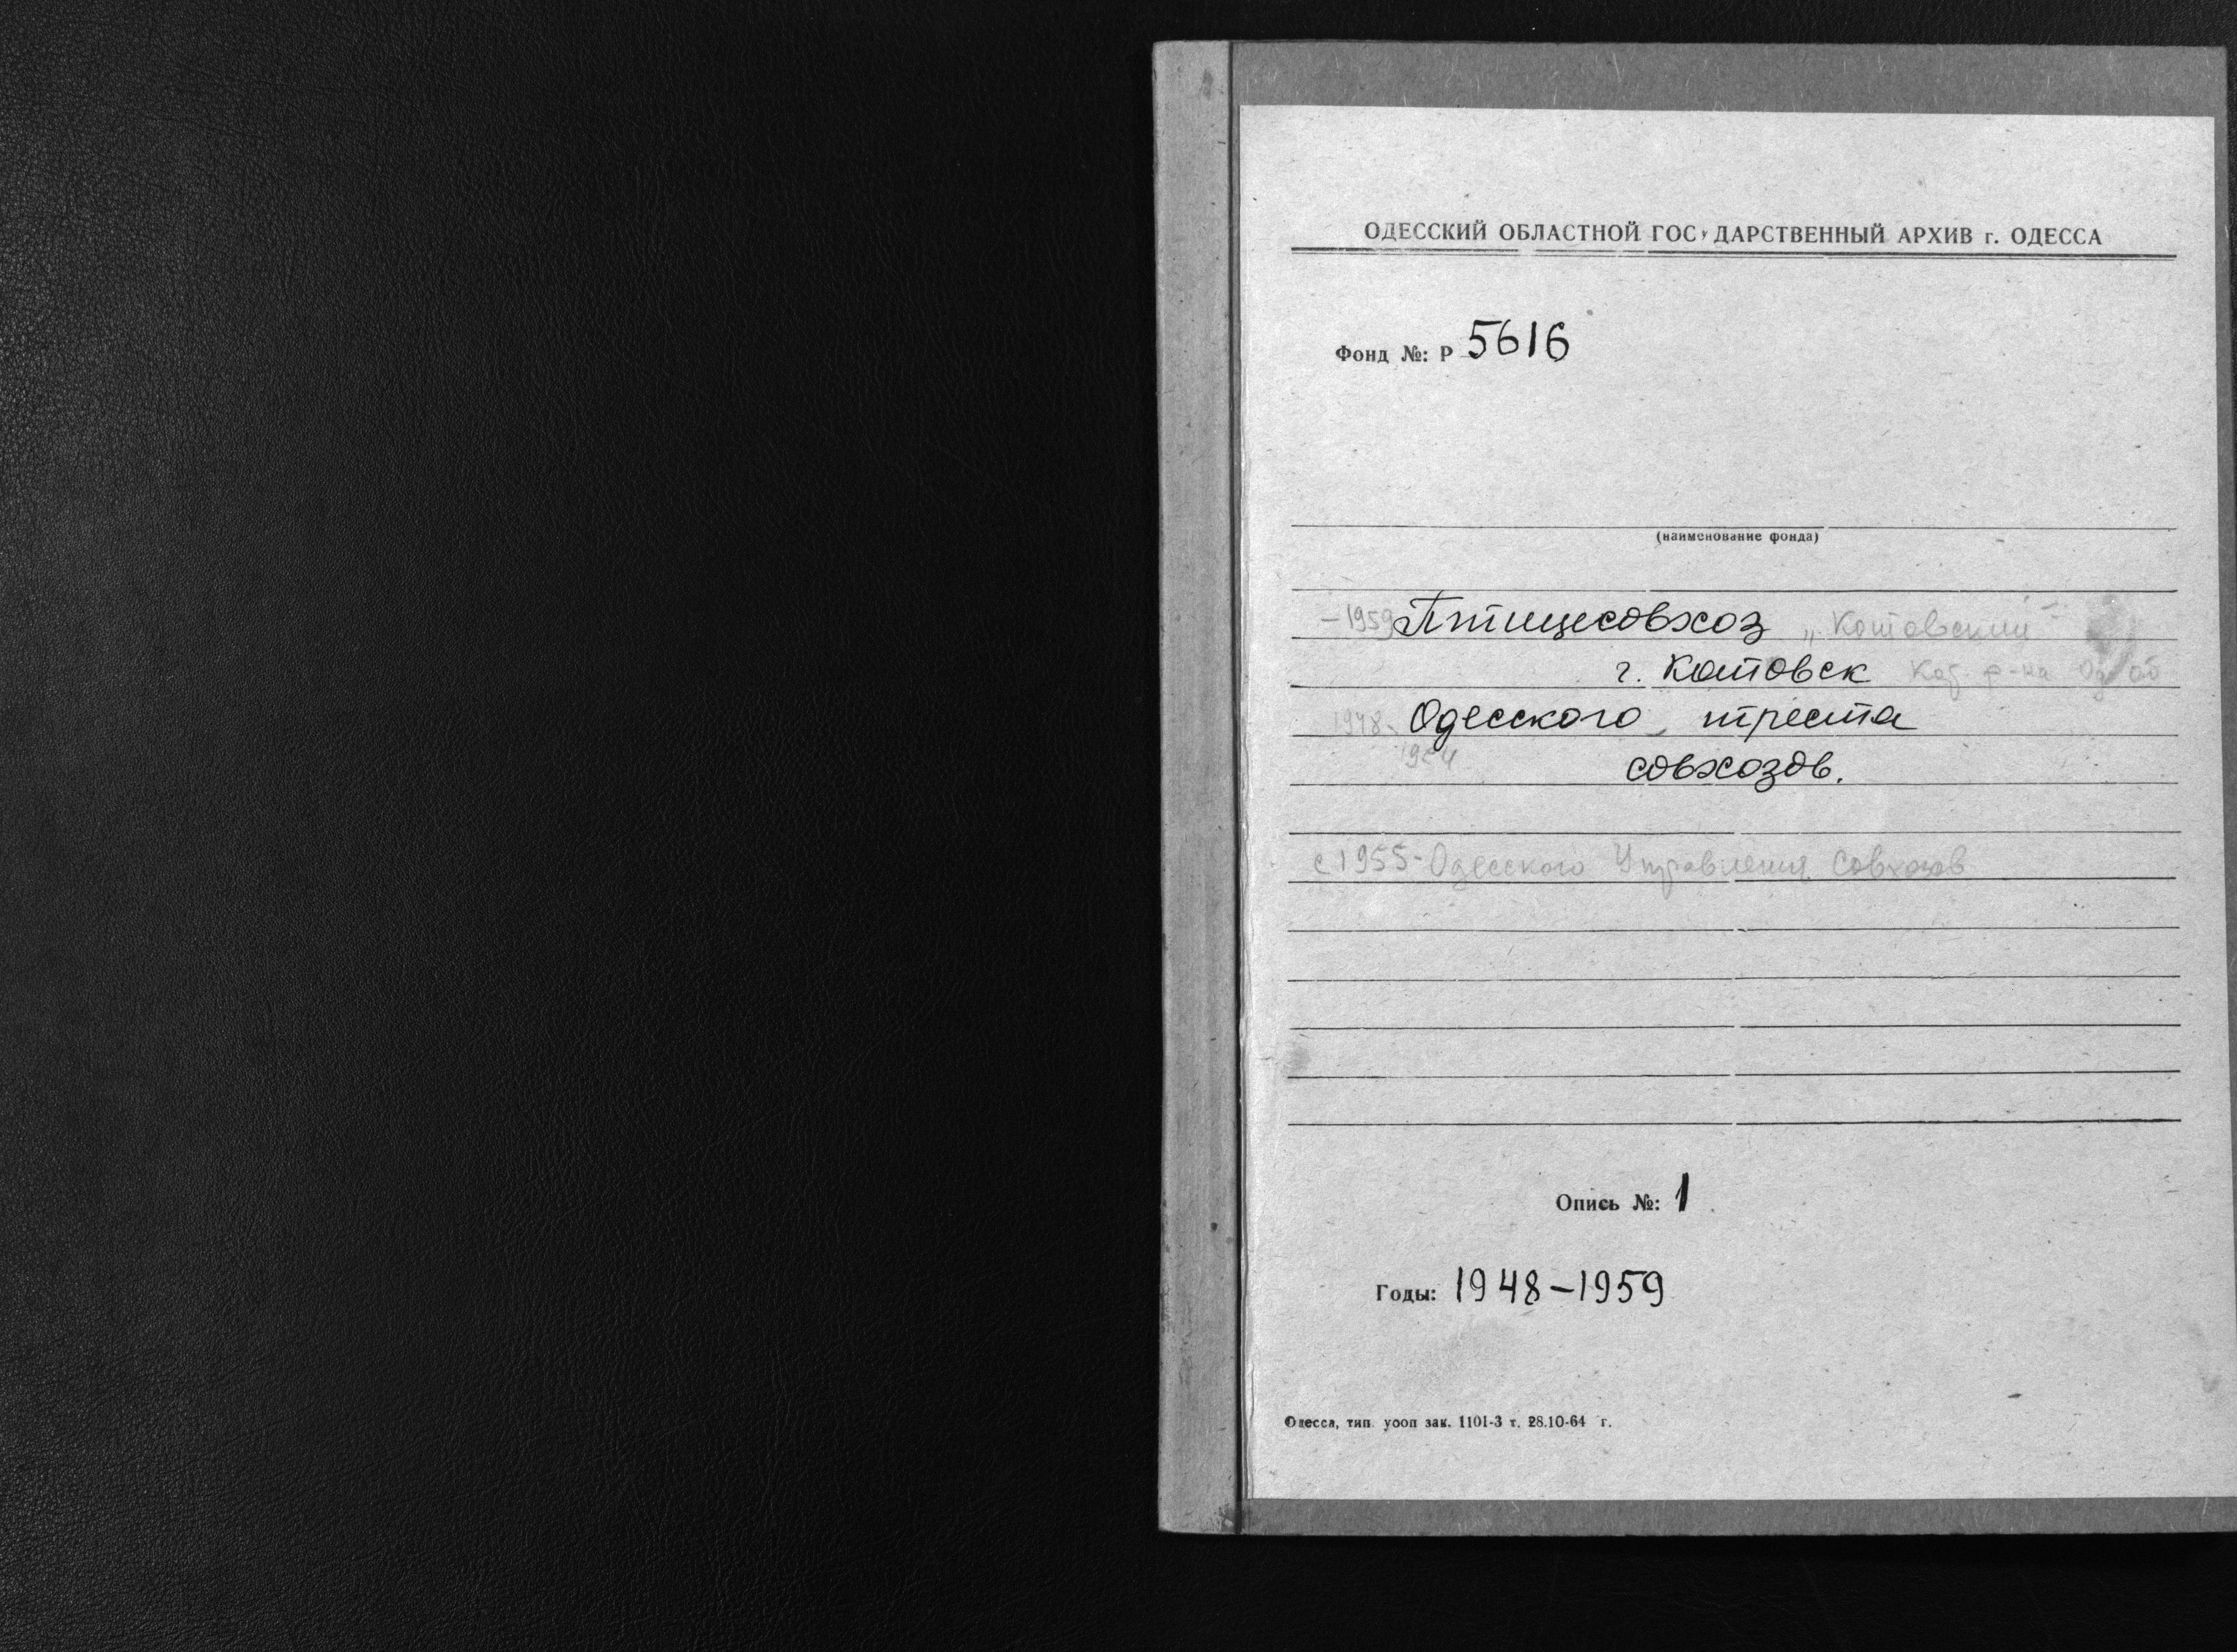 ОДЕССКИЙ ОБЛАСТНОЙ ГОСУДАРСТВЕННЫЙ АРХИВ г. ОДЕССА
Фонд №: Р 5616
(наименование фонда)
–1959 Птицесовхоз „Котовский"
г. Котовск Кот. р-на Од об
1948- Одесского треста
1954 совхозов.
с 1955- Одесского Управления Совхозов
Опись №: 1
Годы: 1948–1959
Одесса, тип. уооп зак. 1101-3 т. 28.10-64 г.